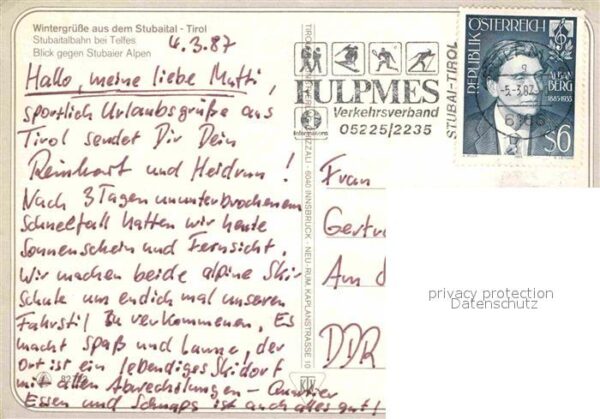 Wintergrüße aus dem Stubaital - Tirol
Stubaitalbahn bei Telfes
Blick gegen Stubaier Alpen
4.3.87
Hallo, meine liebe Mutti,
sportlich Urlaubsgrüße aus
Tirol sendet Dir Dein
Reinhart und Heidrun!
Nach 3 Tagen ununterbrochenem
Schneefall hatten wir heute
Sonnenschein und Fernsicht.
Wir machen beide alpine Ski-
schule um endlich mal unseren
Fahrstil zu vervollkommnen. Es
macht Spaß und Laune, der
Ort ist ein lebendiges Skidorf
mit allen Abwechslungen - Quartier
Essen und Schnaps ist auch alles gut!
FULPMES
Verkehrsverband
05225/2235
Informations
STUBAI-TIROL
-5.-3.87
REPUBLIK ÖSTERREICH
ALBAN
BERG
1885-1935
S6
6040 INNSBRUCK - NEU-RUM, KAPLANSTRASSE 10
Frau
Gertr
Am
DDR
privacy protection
Datenschutz